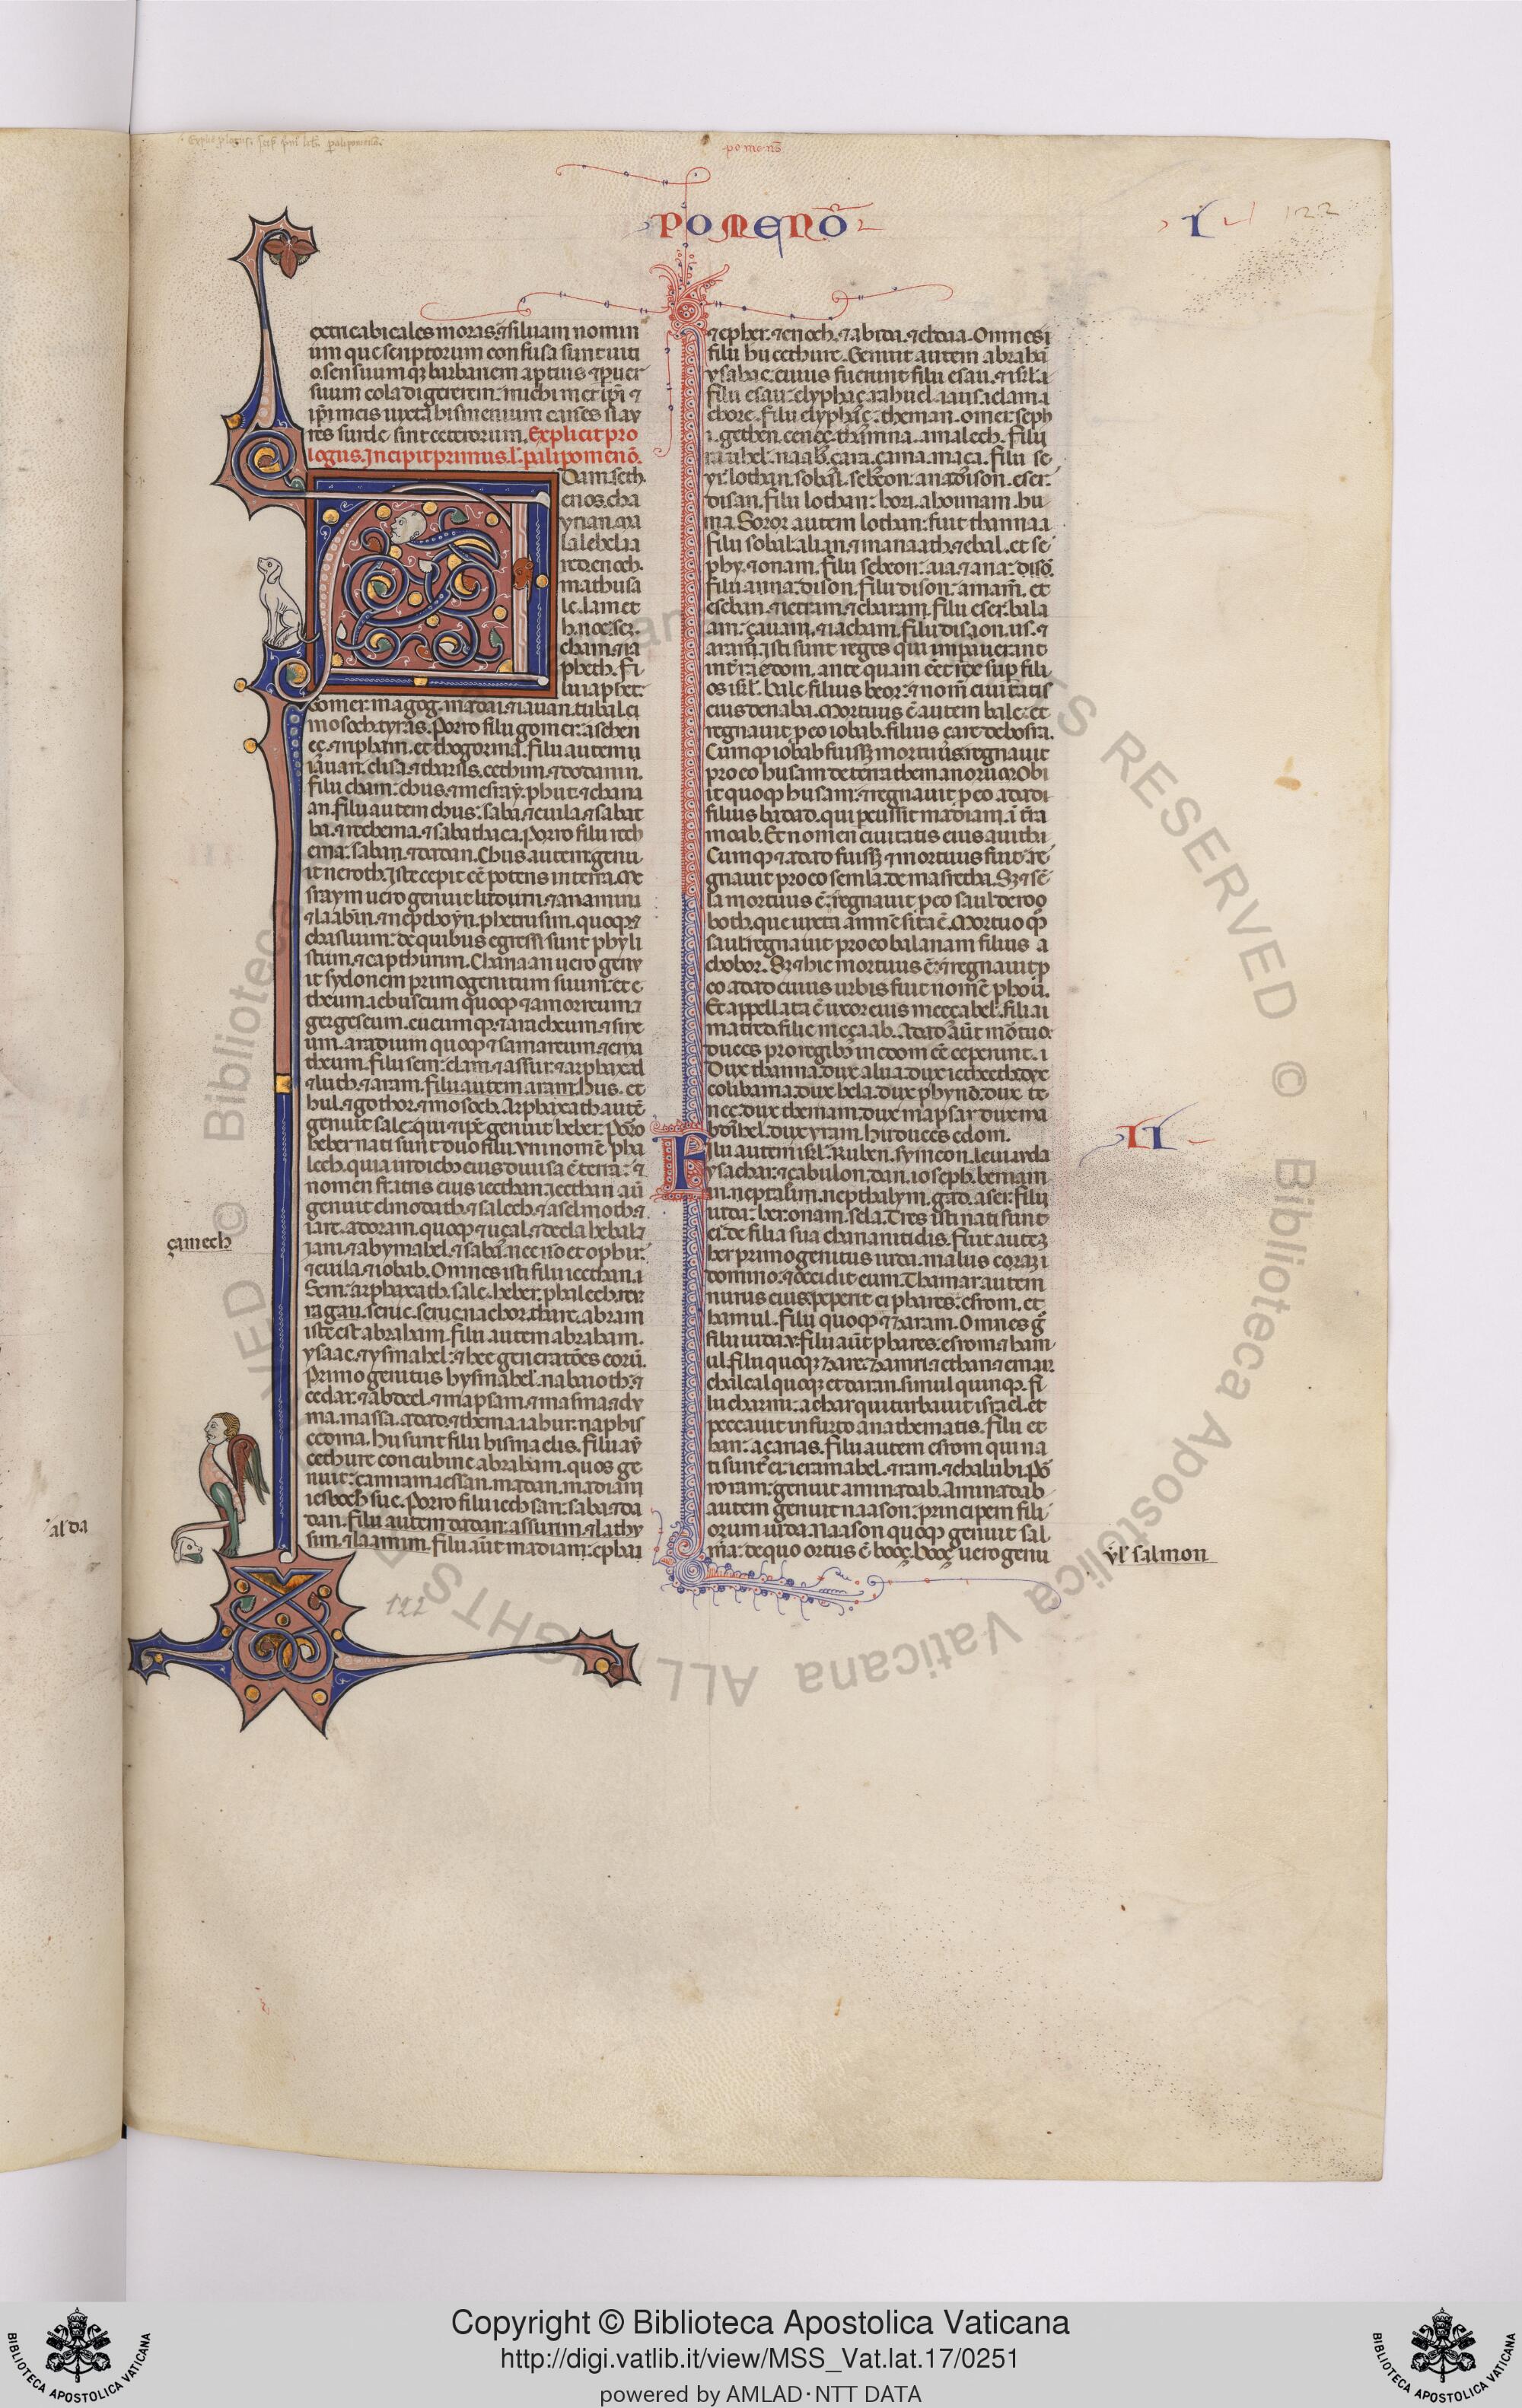 pomenõ
POMENÕ
I
122
extricabiles moras. ⁊ siluam nomin
um que scriptorum confusa sunt uiti
o. sensuumqꝫ barbariem aptius ⁊ ꝑ uer
suum cola digererem: michi met ipi ⁊
ipi meis iuxta hismenium canes si au
res surde sint ceterorum. Explicit pro
logus. Incipit primus. l. palipomenõ.
Dam. seth.
enos. cha
ynan. ma
lalehel. ia
red. enoch.
mathusa
le. lameth
h. noe. sem.
cham. ⁊ ia
pheth. Fi
lii iapheth:
gomer. magog. madai. ⁊ iauan. tubal. ci
mosoch. tyras. Porro filii gomer: aschen
eç. ⁊ ripham. et thogorma. filii autem
iauan: elisa. ⁊ tharsis. cethim. ⁊ dodanim.
filii cham: chus. ⁊ mesray. phut. ⁊ chana
an. filii autem chus: saba. ⁊ euila. ⁊ sabat
ha. ⁊ rechema. ⁊ sabathaca. Porro filii rech
ema: saban. ⁊ dadan. Chus autem genu
it neroth. Iste cepit eẽ potens in terra. Me
sraym uero genuit ludium. ⁊ anamim
⁊ laabin. ⁊ nepthoyn. phetrusim. quoqꝫ ⁊
chasluim: de quibus egressi sunt phyli
stiim. ⁊ capthurim. Chanaan uero genu
it sydonem primogenitum suum: et e
theum. iebuseum quoqꝫ ⁊ amorreum. ⁊
gergeseum. eueum qꝫ ⁊ aracheum. ⁊ sine
um. aradium quoqꝫ ⁊ samareum. ⁊ ema
theum. filii sem: elam. ⁊ assur. ⁊ arphaxad
⁊ luth. ⁊ aram. filii autem aram: hus. et
hul. ⁊ gothor. ⁊ mosoch. Arphaxath autẽ
genuit sale: qui ⁊ ipẽ genuit heber. Porro
heber nati sunt duo filii. Vni nomẽ pha
lech. quia in diebꝫ eius diuisa ẽ terra: ⁊
nomen fratris eius iecthan. iecthan aũ
genuit elmodath. ⁊ salech. ⁊ aselmoth. ⁊
iare. adoram. quoqꝫ ⁊ uçal. ⁊ decla. hebal. ⁊
iam. ⁊ abymahel. ⁊ saba. nec nõ et ophir.
⁊ euila. ⁊ iobab. Omnes isti filii iecthan. ⁊
Sem: arphaxath. sale. heber. phalech. reu
ragau. seruc. seruc. nachor. thare. abram
iste est abraham. filii autem abraham.
ysaac. ⁊ ysmahel. ⁊ hee generatões eorũ.
Primogenitus hysmahel. nabaioth. ⁊
cedar. ⁊ abdeel. ⁊ mapsam. ⁊ masma. ⁊ du
ma. massa. adad. ⁊ thema. iahur. naphis
cedma. hii sunt filii hismaelis. filii aũ
cethure concubine abraham. quos ge
nuit: çamram. iessan. madan. madiam
iesboch. sue. Porro filii iechsan: saba. ⁊ da
dan. filii autem dadan: assurim. ⁊ lathu
sim. ⁊ laamim. filii aũt madiam: epha. ⁊
çamech
122
⁊ epher. ⁊ enoch. ⁊ abida. ⁊ eldaa. Omnes i
filii hii cethure. Genuit autem abrahã
ysahac: cuius fuerunt filii esau. ⁊ isrl. i
filii esau: elyphaç. rahuel. iaus. ielam. i
chore. filii elyphaç: theman. omer. seph
i. gethen. ceneç. thamna. amalech. filii
rahuhel: naab. çara. çama. maça. filii se
yr: lothan. sobal. sebeon. ana. dison. eser:
disan. filii lothan: hori. ahonnam. hu
ma. Soror autem lothan: fuit thanna. i
filii sobal: alian. ⁊ manaath. ⁊ ebal. et se
phy. ⁊ onam. filii sebeon: aia. ⁊ ana: disõ.
filii anna: dison. filii dison: amam. et
eseban. ⁊ ietram. ⁊ charam. filii eser: bala
am: çauam. ⁊ iacham. filii disaon. us. ⁊
aram. Isti sunt reges qui impauerunt
in tra edom. ante quam eẽt rex suꝑ fili
os isrl. bale filius beor: ⁊ nom ciuitatis
eius denaba. Mortuus ẽ autem bale: et
regnauit ꝑ eo iobab. filius çare de bosra.
Cumqꝫ iobab fuissꝫ mortuus: regnauit
pro eo husam de terra themanorũ. Obi
it quoqꝫ husam: ⁊ regnauit ꝑ eo adad
filius badad. qui percussit madiam. ĩ tra
moab. Et nomen ciuitatis eius auithi.
Cumqꝫ ⁊ adad fuissꝫ ⁊ mortuus fuit: re
gnauit pro eo semla. de masrecha. Sꝫ ⁊ sẽ
la mortuus ẽ: regnauit ꝑ eo saul de roo
both. que iuxta amnẽ sita ẽ. Mortuo qꝫ
saul: regnauit pro eo balanam filius a
chobor. Sꝫ ⁊ hic mortuus ẽ: ⁊ regnauit ꝑ
eo adad. cuius urbis fuit nomẽ phou.
Et appellata ẽ uxor eius meeçabel. filia
matred. filie meçaab. Adad aũt mortuo:
duces pro regibꝫ in edom eẽ ceperunt. i
Dux thanna. dux alua. dux ietheth. dux
colibama. dux hela. dux phynõ. dux te
nec. dux themam. dux mapsar. dux ma
hdihel. dux yram. hii duces edom.
II
Filii autem isrl: Ruben. symeon. leui. iuda
ysachar. ⁊ çabulon. dan. ioseph. beniam
in. neptalim. nepthalym. gad. aser. filii
iuda: her. onam. sela. Tres isti nati sunt
ei de filia sua chananitidis. fuit autem
her primogenitus iuda. malus coram
domino: ⁊ occidit eum. Thamar autem
nurus eius peperit ei phares: esrom. et
hamul. filii quoqꝫ ⁊ zaram. Omnes g̃
filii iuda: v. filii aũt phares: esrom ⁊ ham
ul. filii quoqꝫ zare: zamri. ⁊ ethan. ⁊ eman.
chalcal quoqꝫ et daran. simul quinqꝫ. fi
lii charmi: achar qui turbauit israel. et
peccauit in furto anathematis. filii et
han: açarias. filii autem esrom qui na
ti sunt ei: ieramahel. ⁊ ram. ⁊ chalubi. Põ
ro ram: genuit aminadab. Aminadab
autem genuit naason: principem fili
orum iuda. Naason quoqꝫ genuit sal
ma: de quo ortus ẽ booç. booç uero genu
ul salmon
Copyright © Biblioteca Apostolica Vaticana
http://digi.vatlib.it/view/MSS_Vat.lat.17/0251
powered by AMLAD·NTT DATA
BIBLIOTECA APOSTOLICA VATICANA
BIBLIOTECA APOSTOLICA VATICANA